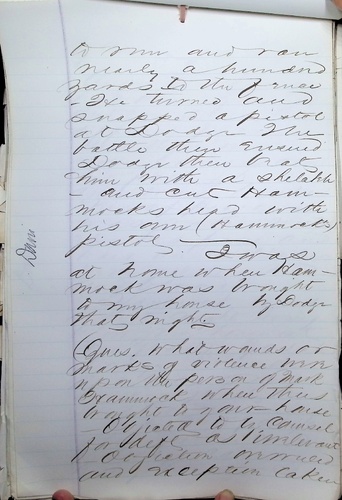 to run and ran
nearly a hundred
yards to the fence
- He turned and
snapped a pistol
at Dodge the
battle then ensued
Dodge then beat
him with a
- and cut Ham-
mocks head with
his own (Hammocks)
pistol - I was
at home when Ham-
mock was brought
to my house by Dodge
that night
Ques. What wounds or
marks of violence were
upon the person of Mark
Hammock when thus
brought to your house
- Objected to by counsel
for deft as irrelevant
Objection overruled
and exception taken
Davis